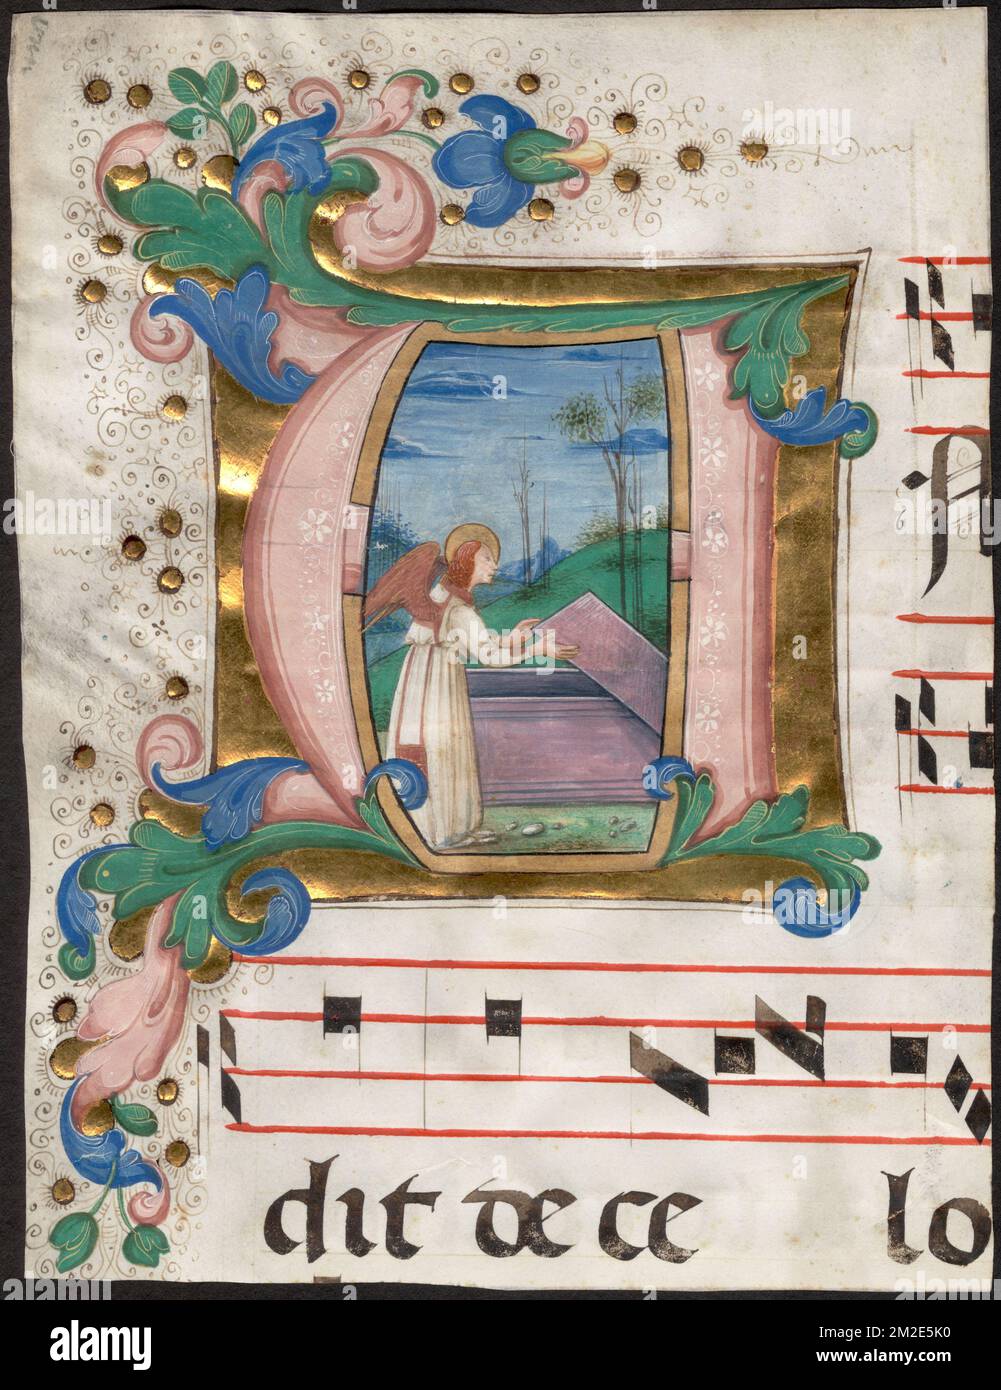 A
dit de ce lo
alamy
Image ID: 2M2E5K0
www.alamy.com